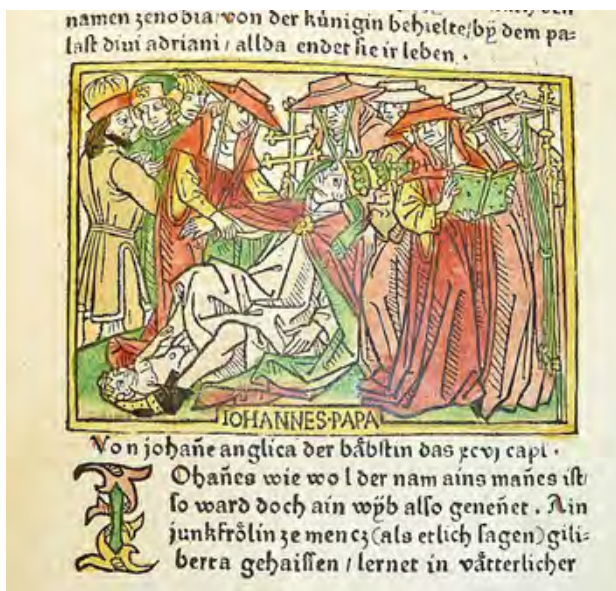 namen zenobia/von der künigin behielte/bÿ dem pa=
last divi adriani/allda endet sie ir leben.
IOHANNES·PAPA
Von johañe anglica der båbstin das xcvj capi·
IOhañes wie wol der nam ains mañes ist/
so ward doch ain wÿb also geneñet. Ain
junkfrőlin ze mencz(als etlich sagen)gili=
berta gehaissen/lernet in våtterlicher